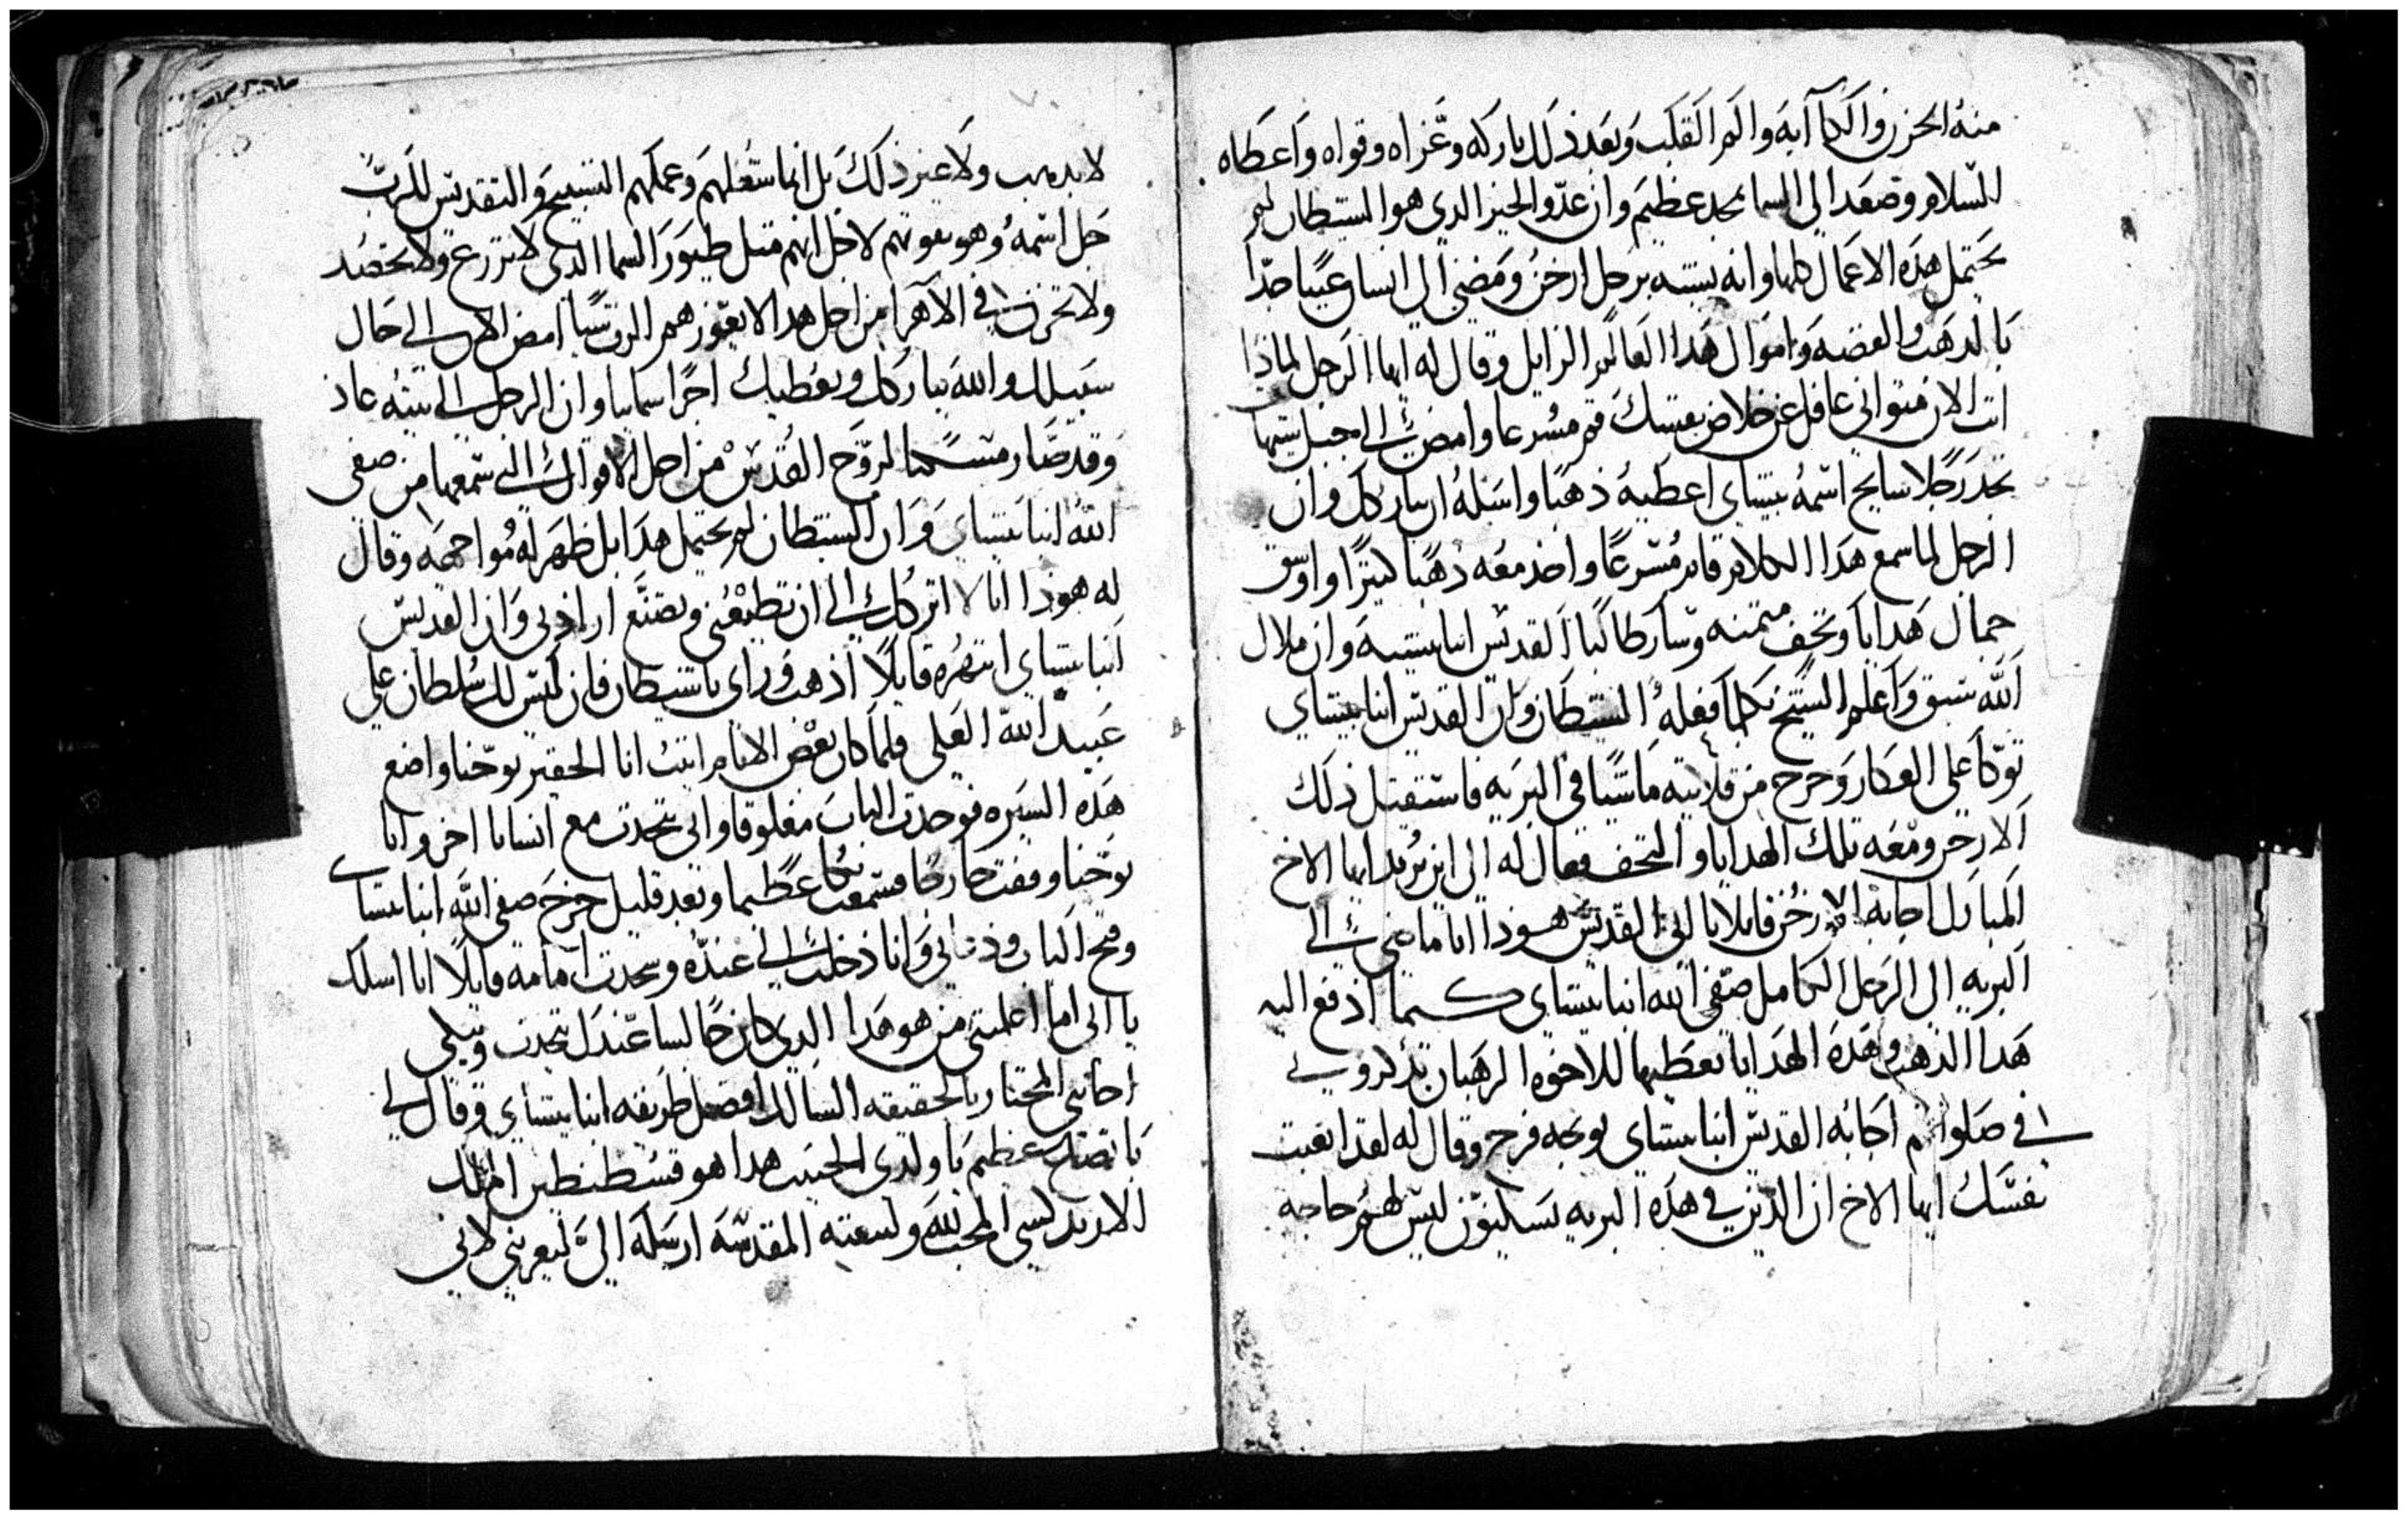 منه الحزن والكآبه والم القلب وبعد ذلك باركه وعزاه وقواه واعطاه
السلام وصعد الى السما بمجد عظيم وان عدو الخير الدى هو الشيطان لم
يحتمل هده الاعمال كلها وانه يتشبه برجل ارخن ومضى الى انسان غنيا جدا
بالدهب والفضه واموال هدا العالم الزايل وقال له ايها الرجل لماذا
انت الان متوانى غافل عن خلاص نفسك قم مسرعا وامض الى جبل شيهات
تجد رجلا سايح اسمه بيشاى اعطيه ذهبا واسله ان يباركك وان
الرجل لما سمع هدا الكلام قام مسرعا واخد معه ذهبا كثيرا واوسق
جمال هدايا وتحف متمنه وسار طالبا القديس انبا بيشيه وان ملاك
الله سبق واعلم الشيخ بكلما فعله الشيطان وان القديس انبا بيشاى
توكا على العكاز وخرج من قلايته ماشيا فى البريه فاستقبل ذلك
الارخن ومعه تلك الهدايا والتحف فقال له الى اين تريد ايها الاخ
المبارك اجابه الارخن قايلا يا ابى القديس هوذا انا ماضى الى
البريه الى الرجل الكامل صفى الله انبا بيشاى كيما ادفع اليه
هدا الدهب وهده الهدايا يعطيها للاخوه الرهبان يدكرونى
فى صلواتهم اجابه القديس انبا بيشاى بوجه فرح وقال له لقد اتعبت
نفسك ايها الاخ ان الدين فى هده البريه يسكنون ليس لهم حاجه
لا بدهب ولا غير ذلك بل انما شغلهم وعملهم التسبيح والتقديس للرب
جل اسمه وهو يقوتهم لاجل انهم متل طيور السما الدى لا تزرع ولا تحصد
ولا تخزن فى الاهرا من اجل هدا لا يعوزهم الرب شيا امض الان الى حال
سبيلك والله يباركك ويعطيك اجرا سمايا وان الرجل الى بيته عاد
وقد صار مسكنا لروح القدس من اجل الاقوال التى سمعها من صفى
الله انبا بيشاى وان الشيطان لم يحتمل هدا بل ظهر له مواجهه وقال
له هوذا انا لا اتركك الى ان تطيعنى وتصنع ارادتى وان القديس
انبا بيشاى انتهره قايلا اذهب وراى يا شيطان فان ليس لك سلطان على
عبيد الله العلى فلما كان بعض الايام اتيت انا الحقير يوحنا واضع
هده السيره فوجدت الباب مغلوقا وابى يتحدت مع انسانا اخر وانا
يوحنا وقفت خارجا فسمعت بكا عظيما وبعد قليل خرج صفى الله انبا بيشاى
وفتح الباب ودعانى وانا دخلت الى عنده وسجدت امامه قايلا انا اسلك
يا ابى اما اعلمتنى من هو هدا الدى كان جالسا عندك يتحدت ويبكى
اجابنى المختار بالحقيقه السالك افضل طريقه انبا بيشاى وقال لى
باتضاع عظيم يا ولدى الحبيب هدا هو قسطنطين الملك
الارتدكسى المحب لله ولبيعته المقدسه ارسله الى ليعرفنى لانى